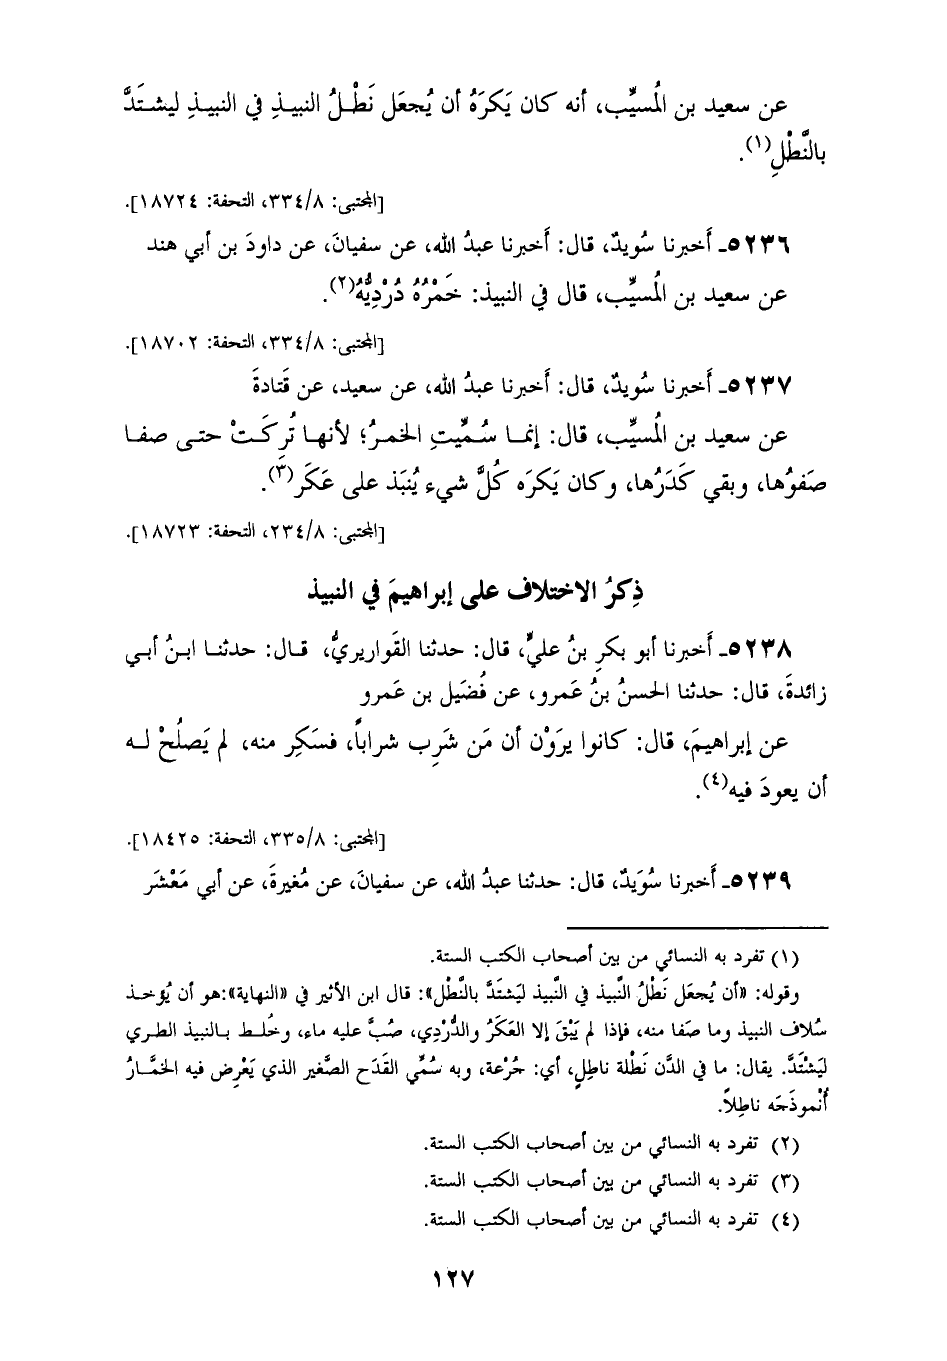 عن سعيد بن المُسيِّب، أنه كان يَكرَهُ أن يُجعَل نَطْلُ النبيذِ في النبيذِ ليشتَدَّ
بالنَّطْلِ(١).
[المجتبى: ٣٣٤/٨، التحفة: ١٨٧٢٤].
٥٢٣٦ـ أَخبرنا سُويدٌ، قال: أَخبرنا عبدُ الله، عن سفيانَ، عن داودَ بن أبي هند
عن سعيد بن المُسيِّب، قال في النبيذ: خَمْرُهُ دُرْدِيُّهُ(٢).
[المجتبى: ٣٣٤/٨، التحفة: ١٨٧٠٢].
٥٢٣٧ـ أَخبرنا سُويدٌ، قال: أَخبرنا عبدُ الله، عن سعيد، عن قَتادةَ
عن سعيد بن المُسيِّب، قال: إنما سُمِّيتِ الخمرُ؛ لأنها تُرِكَتْ حتى صفا
صَفوُها، وبقي كَدَرُها، وكان يَكرَه كُلَّ شيء يُنبَذ على عَكَرٍ(٣).
[المجتبى: ٢٣٤/٨، التحفة: ١٨٧٢٣].
ذِكرُ الاختلاف على إبراهيمَ في النبيذ
٥٢٣٨ـ أَخبرنا أبو بكرِ بنُ عليٍّ، قال: حدثنا القَواريريُّ، قال: حدثنا ابنُ أبي
زائدةَ، قال: حدثنا الحسنُ بنُ عَمرو، عن فُضَيل بن عَمرو
عن إبراهيمَ، قال: كانوا يرَوْن أن مَن شَرِب شراباً، فسَكِر منه، لم يَصلُحْ له
أن يعودَ فيه(٤).
[المجتبى: ٣٣٥/٨، التحفة: ١٨٤٢٥].
٥٢٣٩ـ أَخبرنا سُوَيدٌ، قال: حدثنا عبدُ الله، عن سفيانَ، عن مُغيرةَ، عن أبي مَعْشَر
(١) تفرد به النسائي من بين أصحاب الكتب الستة.
وقوله: «أن يُجعَل نَطْلُ النَّبيذ في النَّبيذ ليَشتَدَّ بالنَّطْل»: قال ابن الأثير في «النهاية»:هو أن يُؤخذ
سُلاف النبيذ وما صَفا منه، فإذا لم يَبْقَ إلا العَكَرُ والدُّرْدِي، صُبَّ عليه ماء، وخُلط بالنبيذ الطري
ليَشْتَدَّ. يقال: ما في الدَّن نَطْلة ناطِلٍ، أي: جُرْعة، وبه سُمِّي القَدَح الصَّغير الذي يَعْرِض فيه الخمَّارُ
أُنْموذَجَه ناطِلاً.
(٢) تفرد به النسائي من بين أصحاب الكتب الستة.
(٣) تفرد به النسائي من بين أصحاب الكتب الستة.
(٤) تفرد به النسائي من بين أصحاب الكتب الستة.
١٢٧